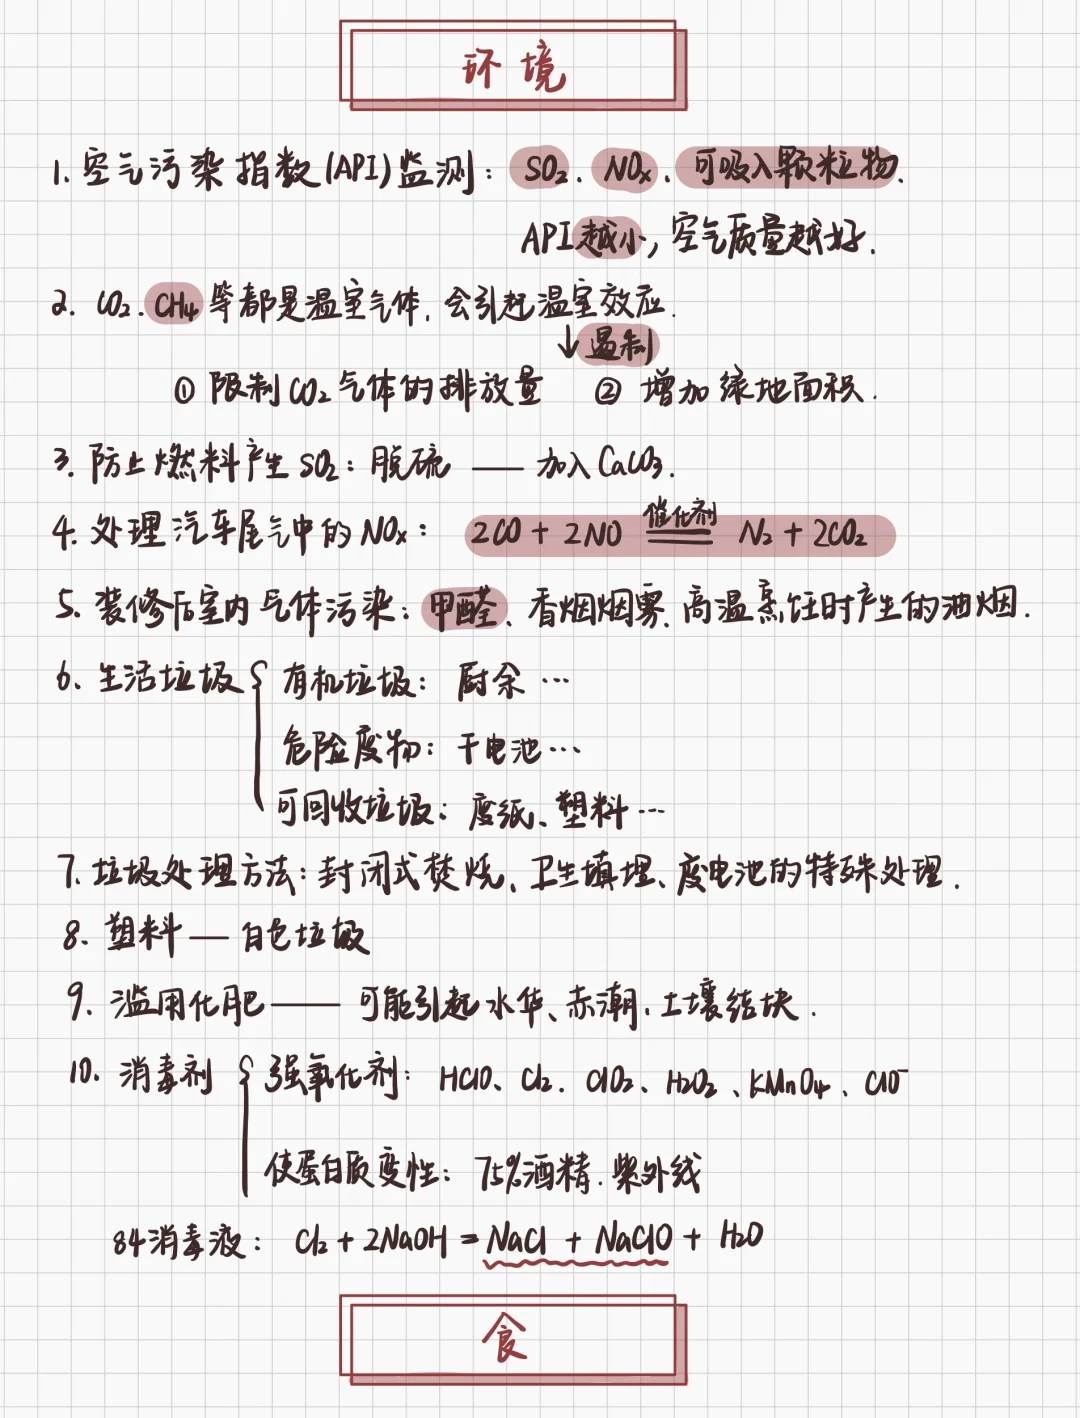 环境
1. 空气污染指数(API)监测：SO₂、NOₓ、可吸入颗粒物.
API越小，空气质量越好.
2. CO₂、CH₄等都是温室气体，会引起温室效应.
↓遏制
① 限制CO₂气体的排放量 ② 增加绿地面积.
3. 防止燃料产生SO₂：脱硫 —— 加入CaCO₃.
4. 处理汽车尾气中的NOₓ： 2CO + 2NO 催化剂 ══ N₂ + 2CO₂
5. 装修后室内气体污染：甲醛、香烟烟雾、高温烹饪时产生的油烟.
6. 生活垃圾 { 有机垃圾： 厨余 …
危险废物：干电池…
可回收垃圾：废纸、塑料…
7. 垃圾处理方法：封闭式焚烧、卫生填埋、废电池的特殊处理.
8. 塑料 —— 白色垃圾
9. 滥用化肥 —— 可能引起水华、赤潮、土壤结块.
10. 消毒剂 { 强氧化剂：HClO、Cl₂、ClO₂、H₂O₂、KMnO₄、ClO⁻
使蛋白质变性：75%酒精、紫外线
84消毒液： Cl₂ + 2NaOH = NaCl + NaClO + H₂O
食